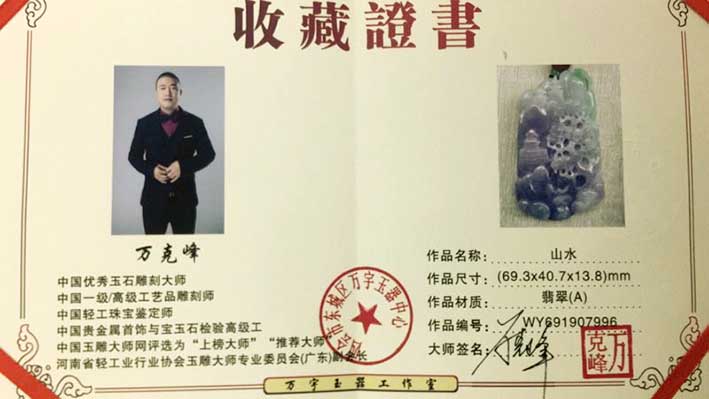 收藏證書
万克峰
中国优秀玉石雕刻大师
中国一级/高级工艺品雕刻师
中国轻工珠宝鉴定师
中国贵金属首饰与宝玉石检验高级工
中国玉雕大师网评选为“上榜大师”“推荐大师”
河南省轻工业行业协会玉雕大师专业委员会(广东)副会长
作品名称：山水
作品尺寸：(69.3x40.7x13.8)mm
作品材质：翡翠(A)
作品编号：WY691907996
大师签名：万克峰
万克峰
市东城区万宇玉器中心
万宇玉器工作室